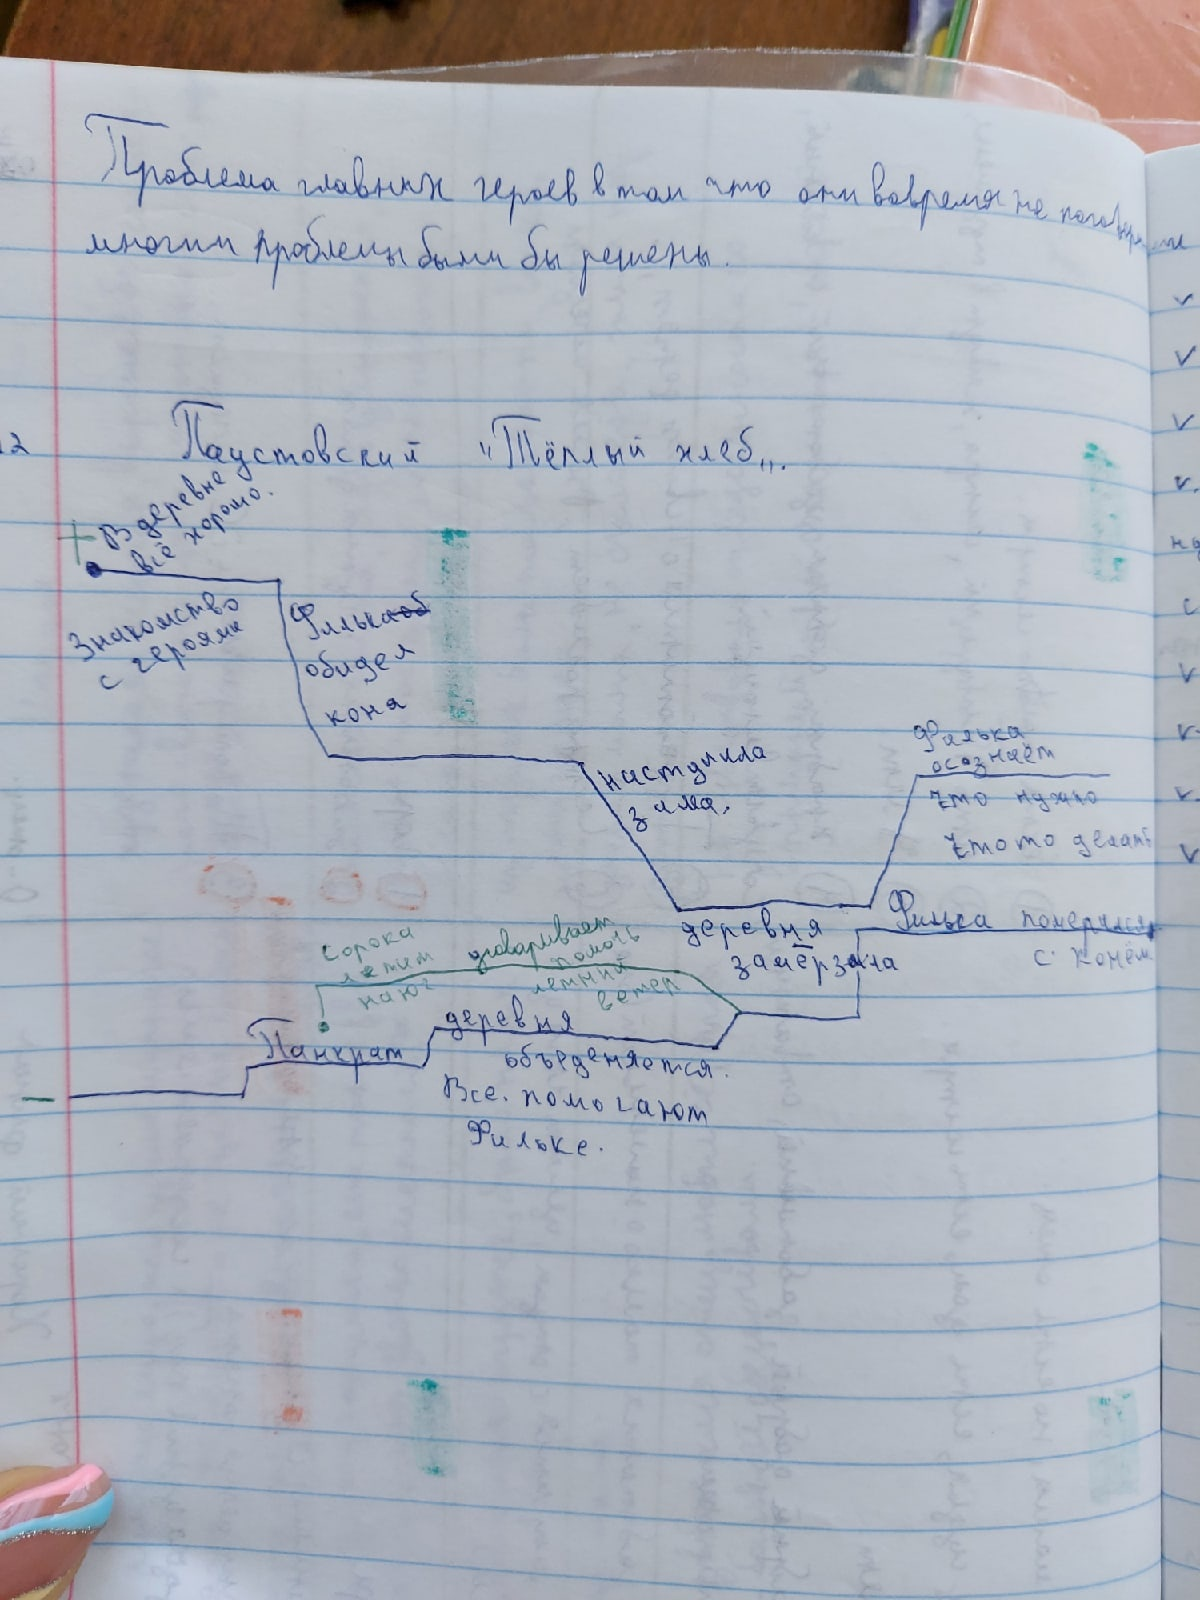 Проблема главных героев в том что они вовремя не
многии проблемы были бы решены.
Паустовский „Тёплый хлеб„.
+ В деревне
всё хорошо.
Знакомство
с героями
Филька об
обидел
коня
наступила
зима.
деревня
замёрзла
Филька
осознаёт
что нужно
что то делать
Филька померился
с конём
сорока
летит
на юг
уговаривает
помочь
летний
ветер
Панкрат
деревня
объеденяется.
Все. помогают
Фильке.